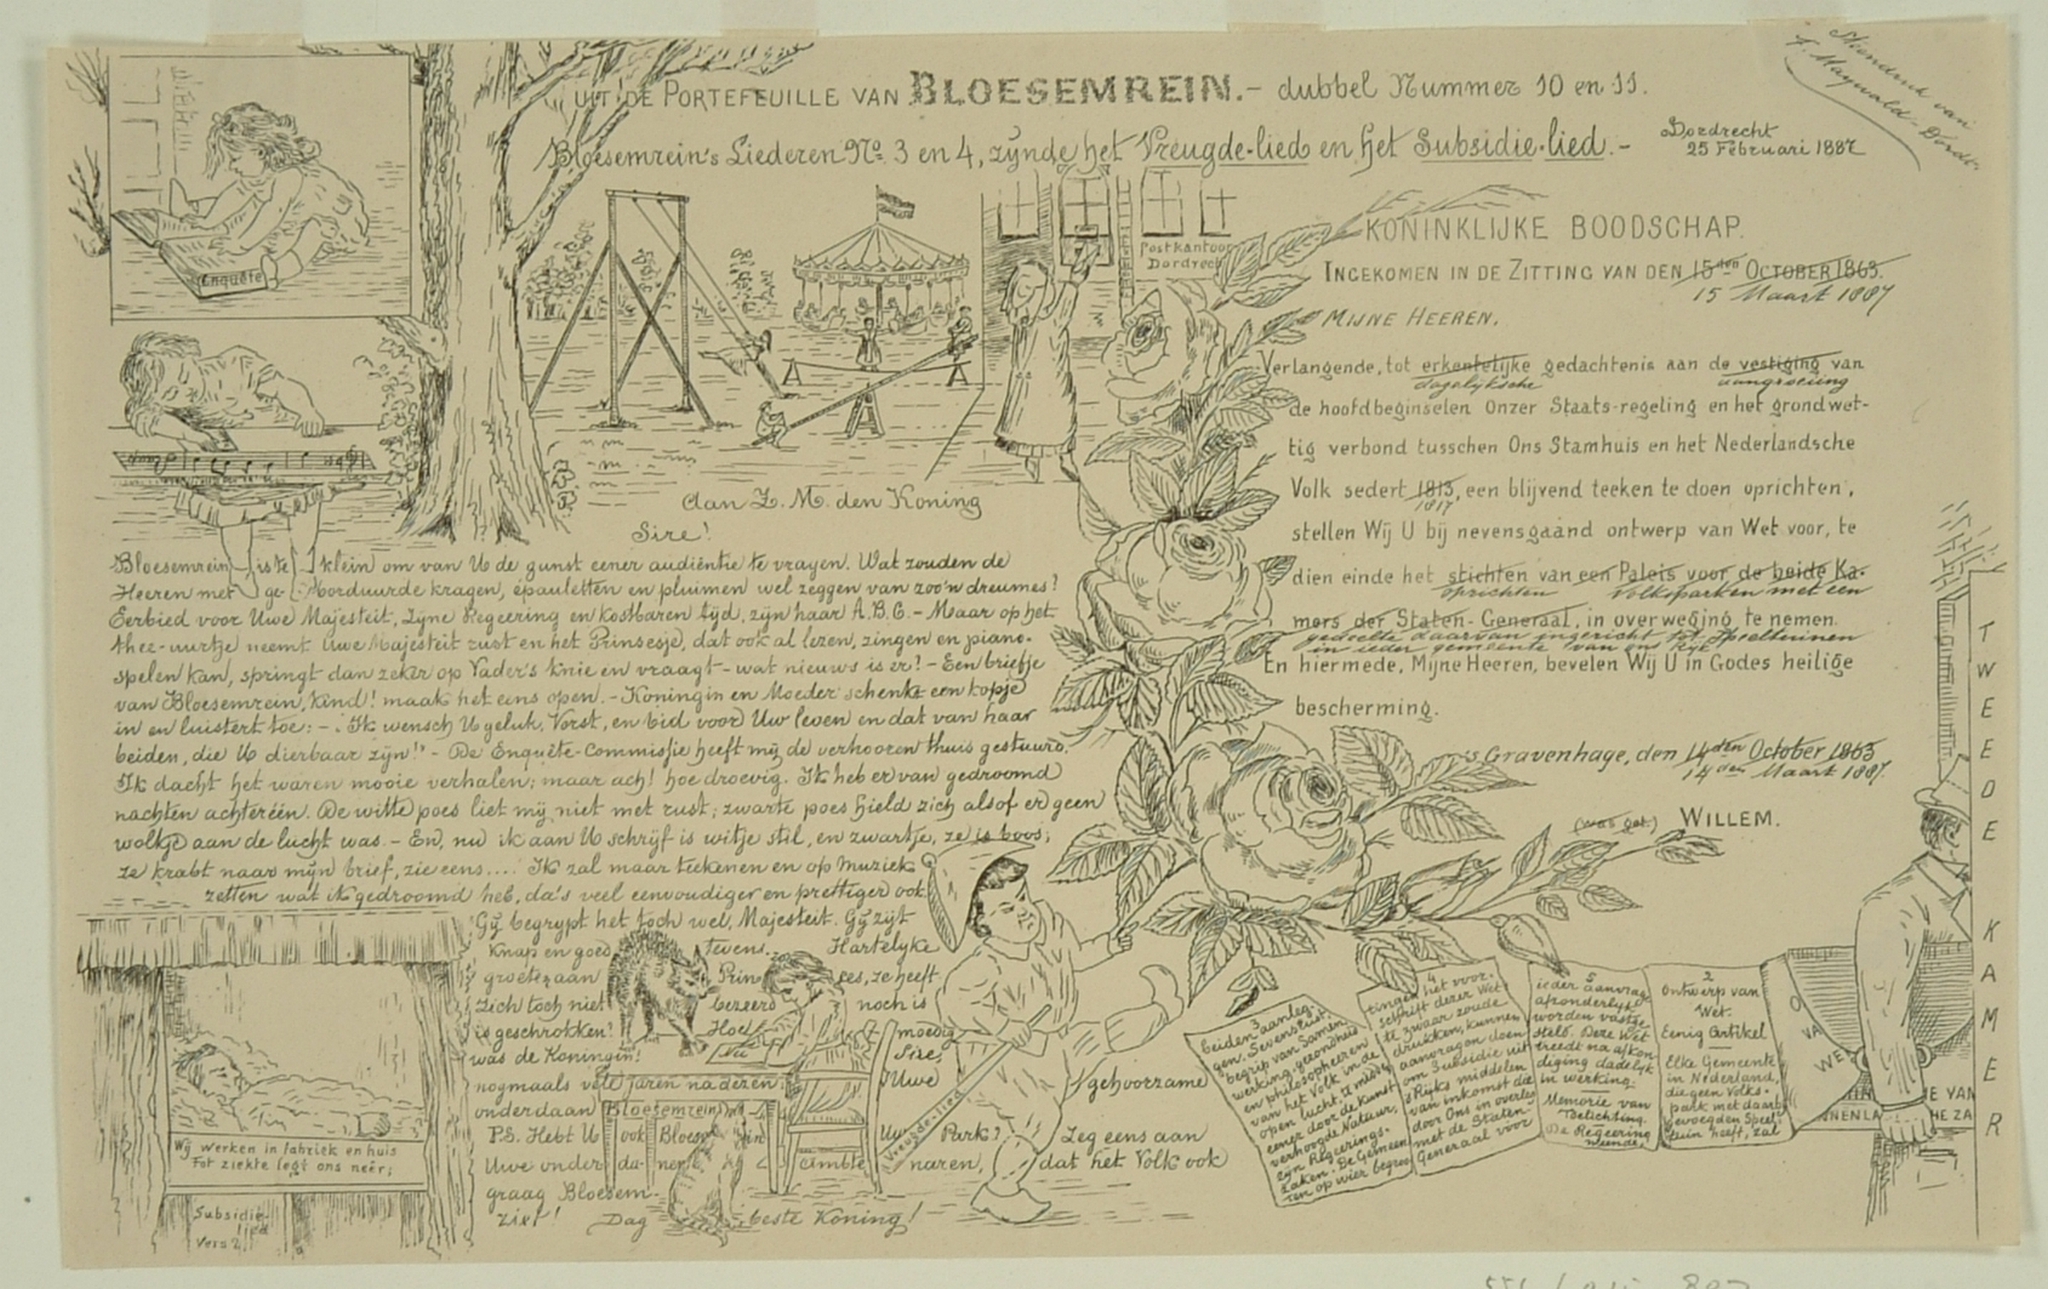 UIT DE PORTEFEUILLE VAN BLOESEMREIN.- dubbel Nummer 10 en 11.
Bloesemrein's Liederen No. 3 en 4, zynde het Vreugde-lied en het Subsidie-lied.-
Dordrecht
25 Februari 1887
Steendruk van
F. Maywald-Dordt.
Enquête
Postkantoor
Dordrecht
Aan Z. M. den Koning
Sire!
Bloesemrein is te klein om van U de gunst eener audiëntie te vragen. Wat zouden de
Heeren met ge-borduurde kragen, épauletten en pluimen wel zeggen van zoo'n dreumes?
Eerbied voor Uwe Majesteit, Zyne Regeering en kostbaren tyd, zyn haar A.B.C. - Maar op het
thee-uurtje neemt Uwe Majesteit rust en het Prinsesje, dat ook al lezen, zingen en piano-
spelen kan, springt dan zeker op Vader's knie en vraagt - wat nieuws is er? - Een briefje
van Bloesemrein, kind! maak het eens open. - Koningin en Moeder schenkt een kopje
in en luistert toe: - Ik wensch U geluk, Vorst, en bid voor Uw leven en dat van haar
beiden, die U dierbaar zyn!" - De Enquête-Commissie heeft my de verhooren thuis gestuurd.
Ik dacht het waren mooie verhalen; maar ach! hoe droevig. Ik heb er van gedroomd
nachten achteréén. De witte poes liet my niet met rust; zwarte poes hield zich alsof er geen
wolkje aan de lucht was. - En, nu ik aan U schryf is witje stil, en zwartje, ze is boos;
ze krabt naar myn brief, zie eens.... Ik zal maar teekenen en op muziek
zetten wat ik gedroomd heb, da's veel eenvoudiger en prettiger ook.
Gy begrypt het toch wel, Majesteit. Gy zyt
knap en goed tevens. Hartelyke
groeten aan Prinses, ze heeft
zich toch niet bezeerd noch is
is geschrokken? Hoe moedig
was de Koningin! Sire,
nogmaals vele jaren na dezen. Uwe gehoorzame
onderdaan Bloesemrein
P.S. Hebt U ook Bloesem in Uw Park? Zeg eens aan
Uwe onder-da-nen, ambtenaren, dat het Volk ook
graag Bloesem
ziet! Dag beste Koning!
Vreugde-lied
Wy werken in fabriek en huis
Tot ziekte legt ons neêr;
Subsidie-
lied
Vers 2
KONINKLIJKE BOODSCHAP.
INGEKOMEN IN DE ZITTING VAN DEN 15den OCTOBER 1863.
15 Maart 1887
MIJNE HEEREN,
Verlangende, tot erkentelijke gedachtenis aan de vestiging van
dagelyksche aangroeiing
de hoofdbeginselen Onzer Staats-regeling en het grondwet-
tig verbond tusschen Ons Stamhuis en het Nederlandsche
Volk sedert 1813, een blijvend teeken te doen oprichten,
1817
stellen Wij U bij nevensgaand ontwerp van Wet voor, te
dien einde het stichten van een Paleis voor de beide Ka-
oprichten Volksparken met een
mers der Staten-Generaal, in overweging te nemen.
gedeelte daarvan ingericht tot Speeltuinen
in ieder gemeente van ons Ryk
En hiermede, Mijne Heeren, bevelen Wij U in Godes heilige
bescherming.
's Gravenhage, den 14den October 1863
14den Maart 1887.
(was get.) WILLEM.
TWEEDE KAMER
2
Ontwerp van
Wet.
Eenig Artikel
Elke Gemeente
in Nederland,
die geen Volks-
park met daarby
gevoegden Speel-
tuin heeft, zal
3
beiden aanleg-
gen. Sevens uit
begrip van Samen-
werking, gezondheid
en philosopheeren
van het Volk in de
open lucht, te midden
eener door de Kunst
verhoogde Natuur,
zyn Regeerings-
zaken. De Gemeen-
ten op wier begroo-
4
tingen het voor-
schrift dezer Wet
te zwaar zoude
drukken, kunnen
aanvragen doen
om Subsidie uit
's Ryks middelen
van inkomst die
door Ons in overleg
met de Staten-
Generaal voor
5
ieder aanvrage
afzonderlyk
worden vastge-
steld. Deze Wet
treedt na afkon-
diging dadelyk
in werking.
Memorie van
Toelichting.
De Regeering
meende,